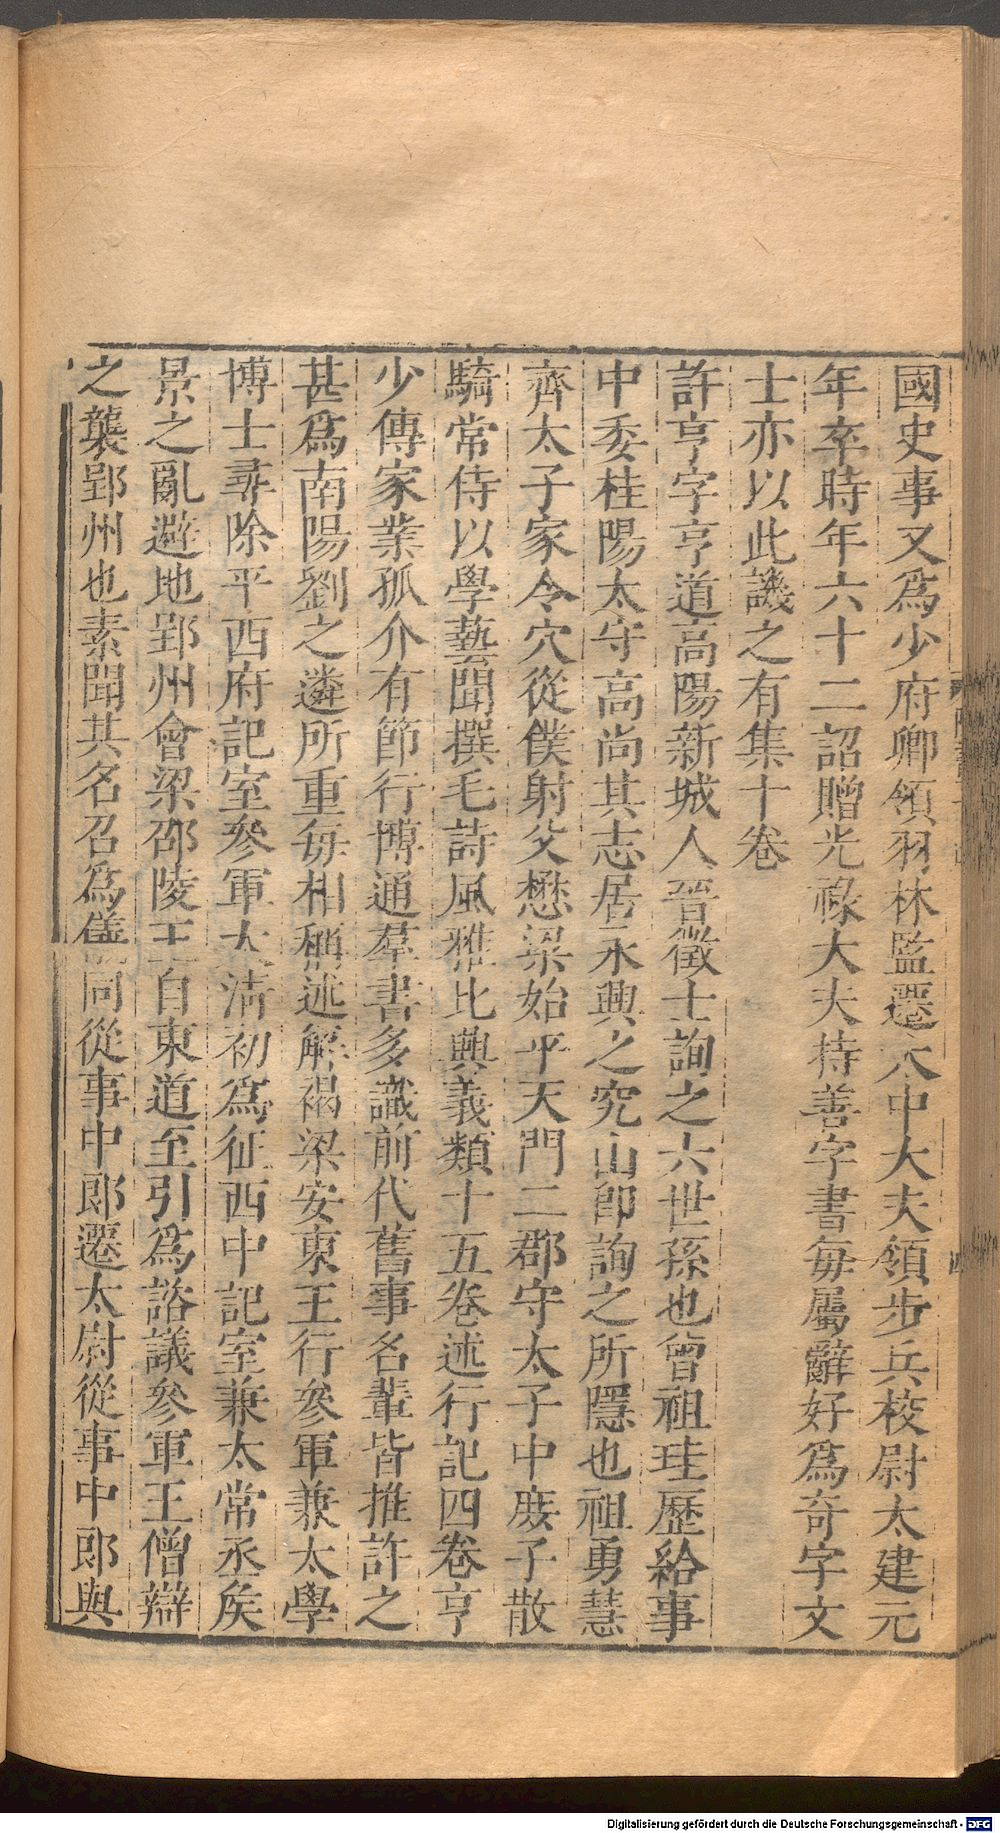 國史事又爲少府卿領羽林監遷太中大夫領步兵校尉太建元
年卒時年六十二詔贈光祿大夫持善字書每屬辭好爲奇字文
士亦以此譏之有集十卷
許亨字亨道高陽新城人晉徵士詢之六世孫也曾祖珪歷給事
中委桂陽太守高尚其志居永興之究山即詢之所隱也祖勇慧
齊太子家令穴從僕射父懋梁始平天門二郡守太子中庻子散
騎常侍以學藝聞撰毛詩風雅比興義類十五卷述行記四卷亨
少傳家業孤介有節行博通羣書多識前代舊事名輩皆推許之
甚爲南陽劉之遴所重每相稱述解褐梁安東王行參軍兼太學
博士尋除平西府記室參軍太清初爲征西中記室兼太常丞矦
景之亂避地郢州會梁邵陵王自東道至引爲諮議參軍王僧辯
之襲郢州也素聞其名召爲儀同從事中郞遷太尉從事中郞與
Digitalisierung gefördert durch die Deutsche Forschungsgemeinschaft - DFG